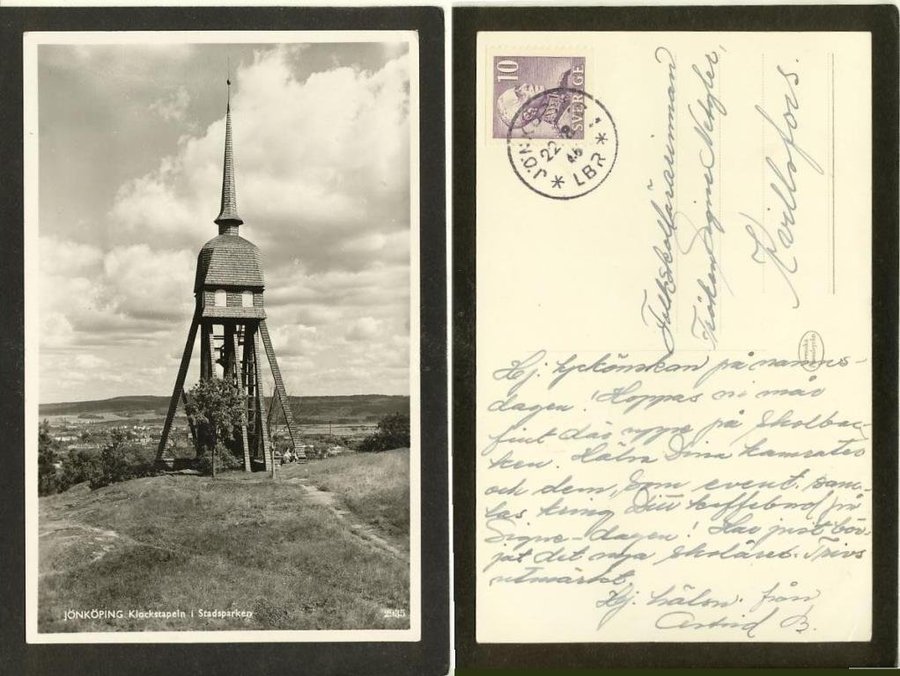 JÖNKÖPING. Klockstapeln i Stadsparken
2935
10
SVERIGE
22 8
LBR
1
Folkskollärarinnan
Fröken Signe
Kvillsfors.
Hj. lyckönskan på namns-
dagen! Hoppas ni mår
fint där uppe på Skolbac-
ken. Hälsa Dina kamrater
och dem, som event. sam-
las kring Ditt kaffebord på
Signe-dagen! Har just bör-
jat det nya skolåret. Trivs
utmärkt.
Hj. hälsn. från
Astrid B.